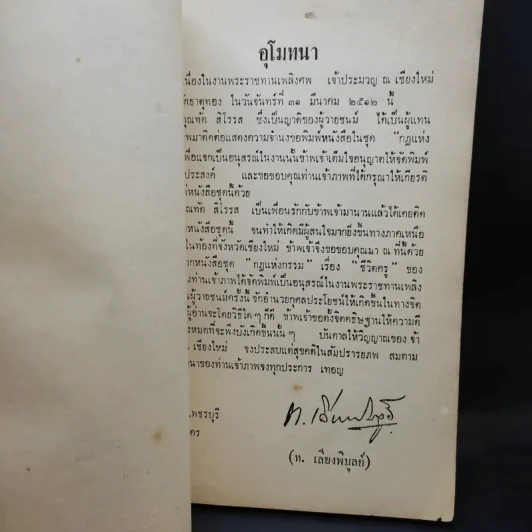 อุโมทนา
นื่องในงานพระราชทานเพลิงศพ เจ้าประมวญ ณ เชียงใหม่
ัดธาตุทอง ในวันจันทร์ที่ ๓๑ มีนาคม ๒๕๑๒ นี้
ุณทัด สิโรรส ซึ่งเป็นญาติของผู้วายชนม์ ได้เป็นผู้แทน
พมาติดต่อแสดงความจำนงขอพิมพ์หนังสือในชุด "กฎแห่ง
พื่อแจกเป็นอนุสรณ์ในงานนั้นข้าพเจ้าเต็มใจอนุญาตให้จัดพิมพ์
ประสงค์ และขอขอบคุณท่านเจ้าภาพที่ได้กรุณาให้เกียรติ
์หนังสือชุดนี้ด้วย
ุณทัด สิโรรส เป็นเพื่อนรักกับข้าพเจ้ามานานแล้วได้เคยติด
หนังสือชุดนี้ จนทำให้เกิดมีผู้สนใจมากยิ่งขึ้นทางภาคเหนือ
ในท้องที่จังหวัดเชียงใหม่ ข้าพเจ้าจึงขอขอบคุณมา ณ ที่นี้ด้วย
ากหนังสือชุด "กฎแห่งกรรม" เรื่อง "ชีวิตครู" ของ
งท่านเจ้าภาพได้จัดพิมพ์เป็นอนุสรณ์ในงานพระราชทานเพลิง
ผู้วายชนม์ครั้งนี้ จักอำนวยกุศลประโยชน์ให้เกิดขึ้นในทางจิต
ผู้อ่านจะโดยวิธีใดๆ ก็ดี ข้าพเจ้าขอตั้งจิตอธิษฐานให้ความดี
งหมดที่จะพึงบังเกิดขึ้นนั้นๆ บันดาลให้วิญญาณของ จ้า
เชียงใหม่ จงประสบแด่สุขคติในสัมปรายภพ สมตาม
นาของท่านเจ้าภาพจงทุกประการ เทอญ
เพชรบุรี
คร
(ท. เลียงพิบูลย์)